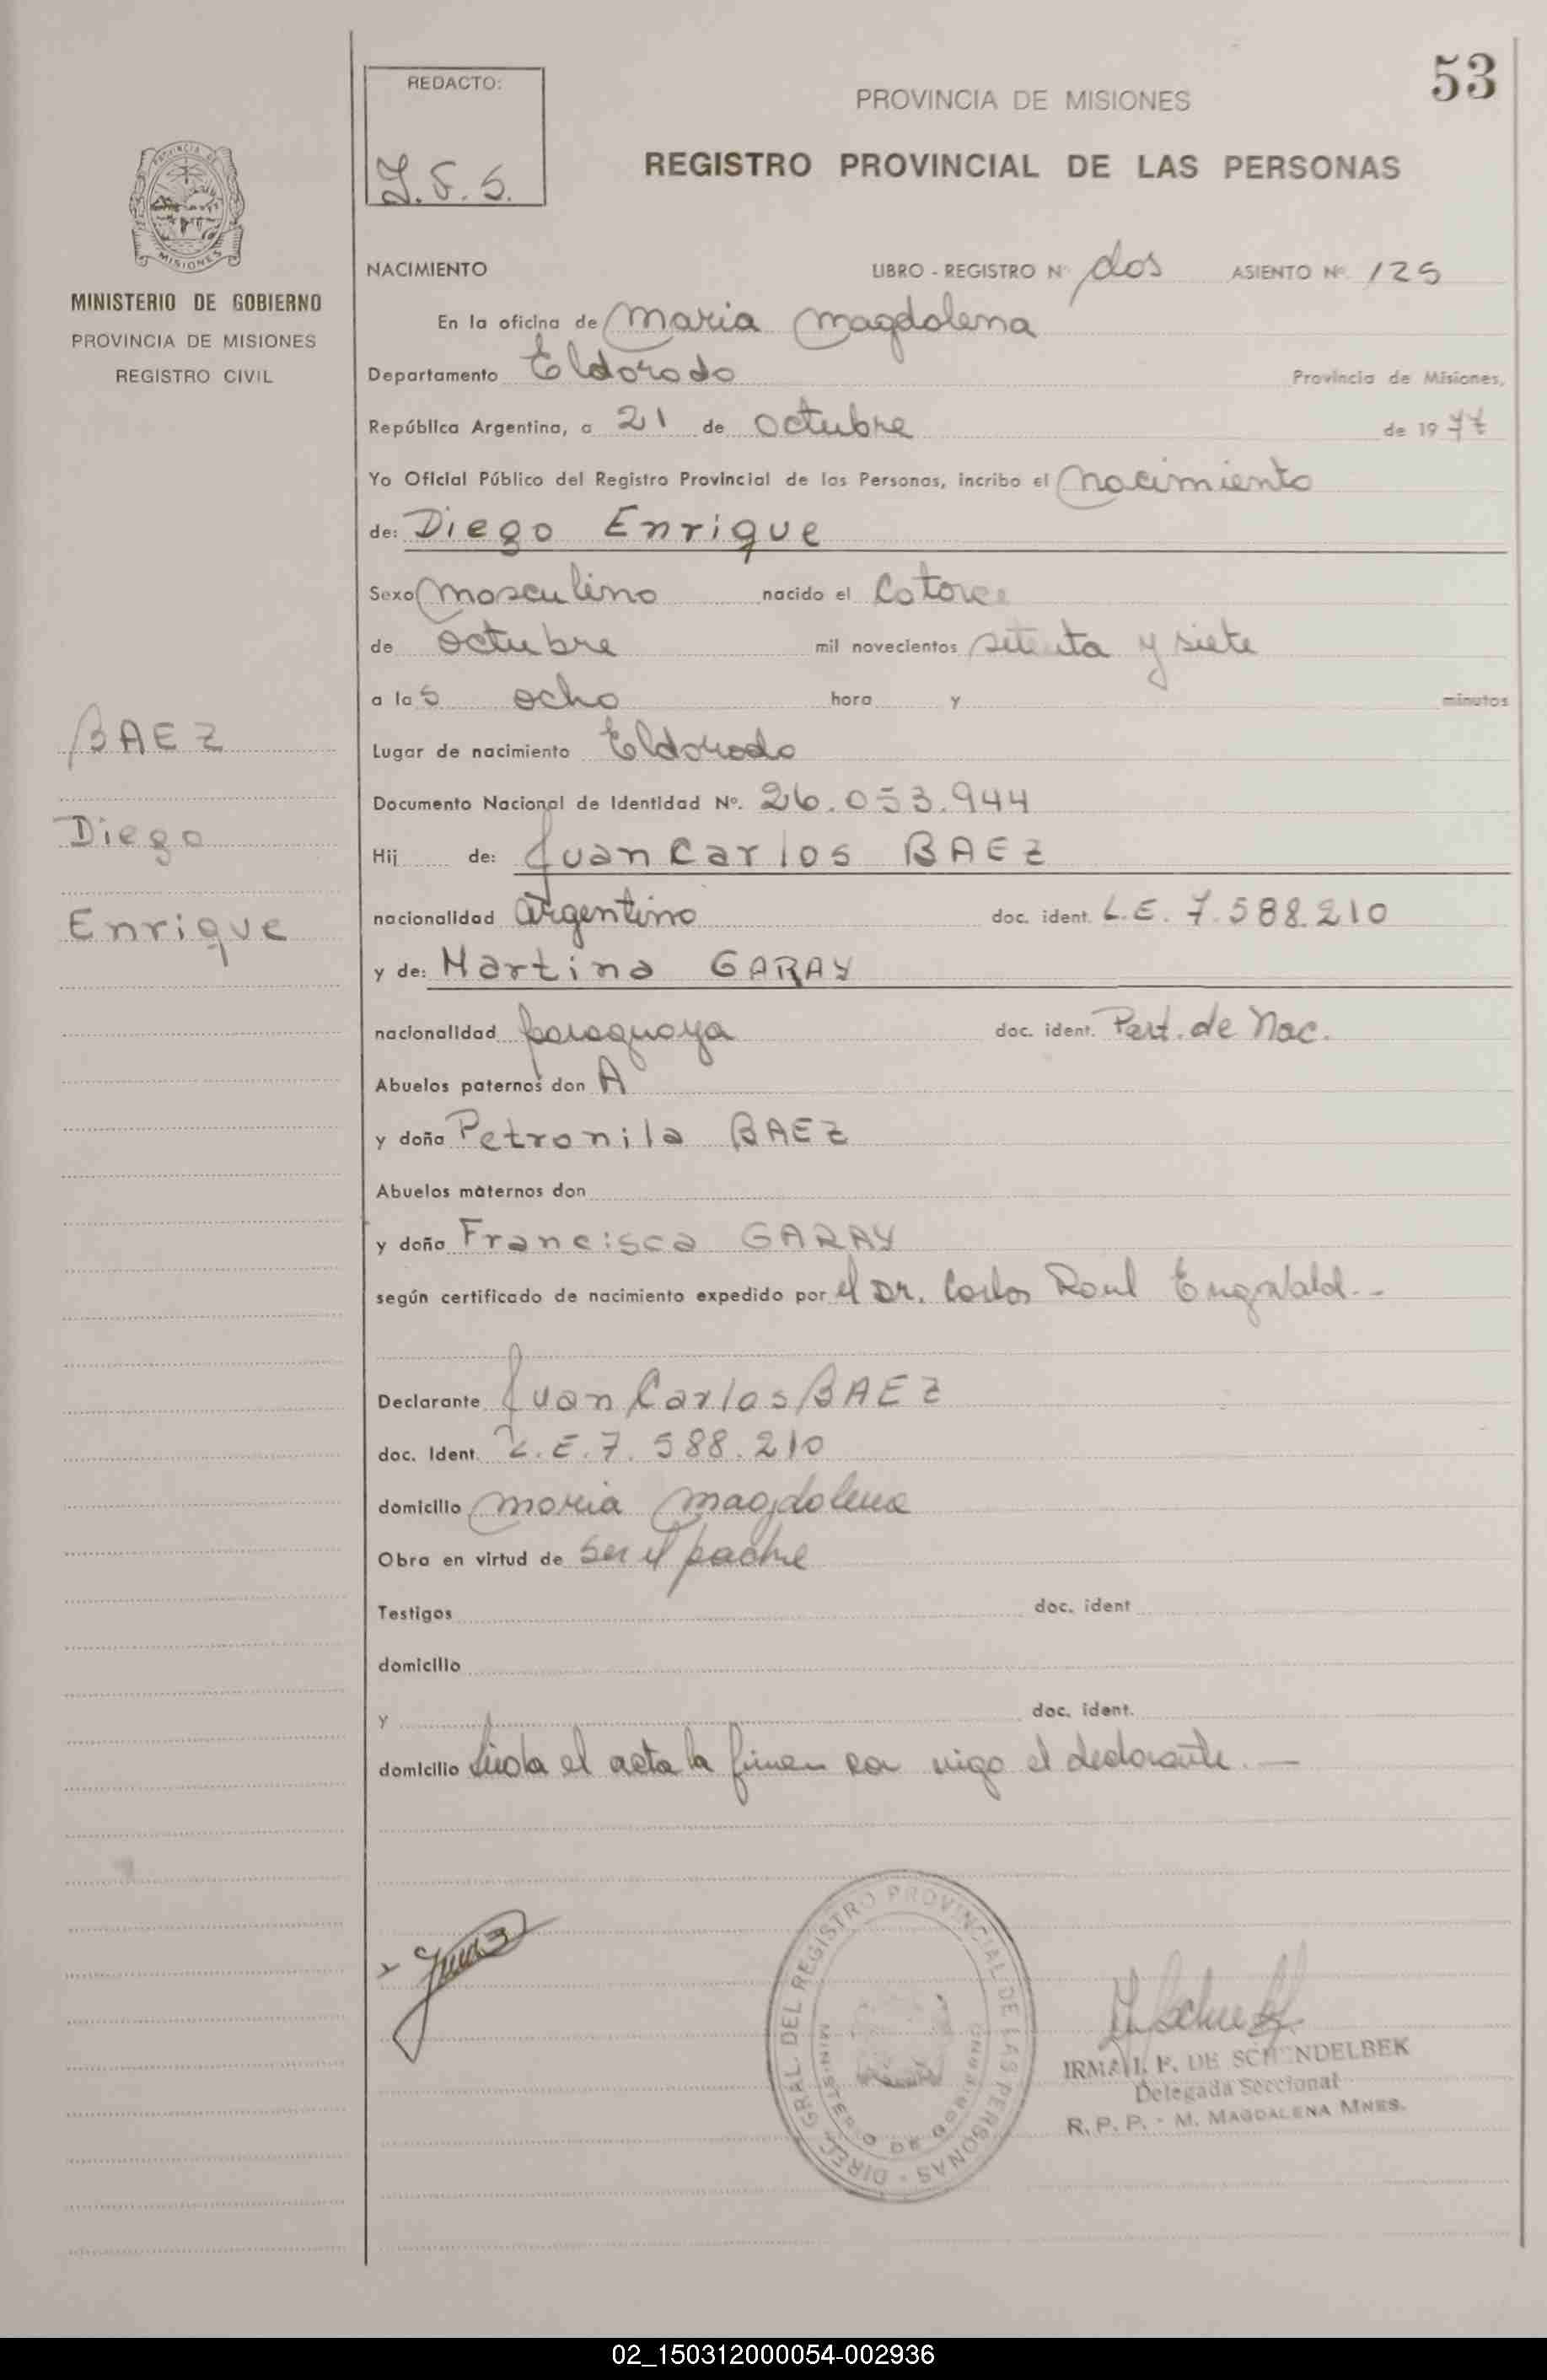 53
REDACTO:
PROVINCIA DE MISIONES
REGISTRO PROVINCIAL DE LAS PERSONAS
PROVINCIA DE MISIONES
MINISTERIO DE GOBIERNO
PROVINCIA DE MISIONES
REGISTRO CIVIL
NACIMIENTO LIBRO - REGISTRO Nº dos ASIENTO Nº 125
En la oficina de Maria Magdalena
Departamento Eldorado Provincia de Misiones,
República Argentina, a 21 de octubre de 1977
Yo Oficial Público del Registro Provincial de las Personas, incribo el nacimiento
de: Diego Enrique
Sexo masculino nacido el Catorce
de octubre mil novecientos setenta y siete
a las ocho hora y minutos
Lugar de nacimiento Eldorado
Documento Nacional de Identidad Nº. 26.053.944
Hij de: Juan Carlos BAEZ
nacionalidad argentino doc. ident. L.E. 7.588.210
y de: Martina GARAY
nacionalidad paraguaya doc. ident. Part. de Nac.
Abuelos paternos don A
y doña Petronila BAEZ
Abuelos maternos don
y doña Francisca GARAY
según certificado de nacimiento expedido por el Dr. Carlos Raul
Declarante Juan Carlos BAEZ
doc. Ident. L.E. 7.588.210
domicilio Maria Magdalena
Obra en virtud de ser el padre
Testigos doc. ident
domicilio
y doc. ident.
domicilio Leida el acta la firman con migo el declarante.—
BAEZ
Diego
Enrique
DIREC. GRAL. DEL REGISTRO PROVINCIAL DE LAS PERSONAS -
MINISTERIO DE GOBIERNO
IRMA I. F. DE SCHENDELBEK
Delegada Seccional
R.P.P. - M. MAGDALENA MNES.
02_150312000054-002936